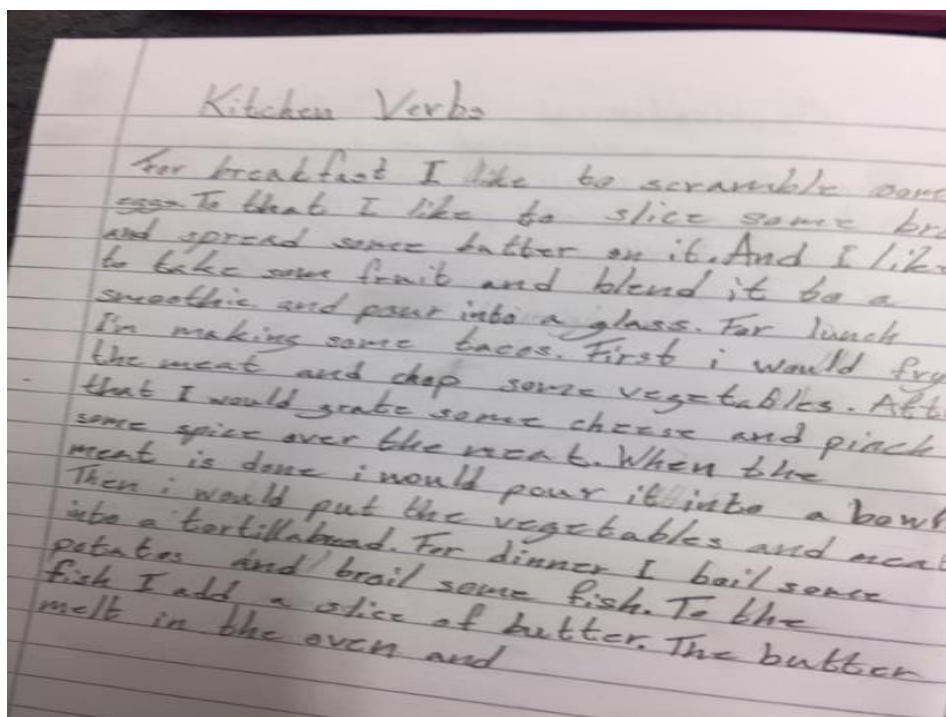 Kitchen Verbs
For breakfast I like to scramble som
eggs. To that I like to slice some bre
and spread some batter on it. And I like
to take some fruit and blend it to a
smoothie and pour into a glass. For lunch
I'm making some tacos. First i would fry
the meat and chop some vegetables. Aft
that I would grate some cheese and pinch
some spice over the meat. When the
meat is done i would pour it into a bowl
Then i would put the vegetables and meat
into a tortillabread. For dinner I boil some
potatos and broil some fish. To the
fish I add a slice of butter. The butter
melt in the oven and